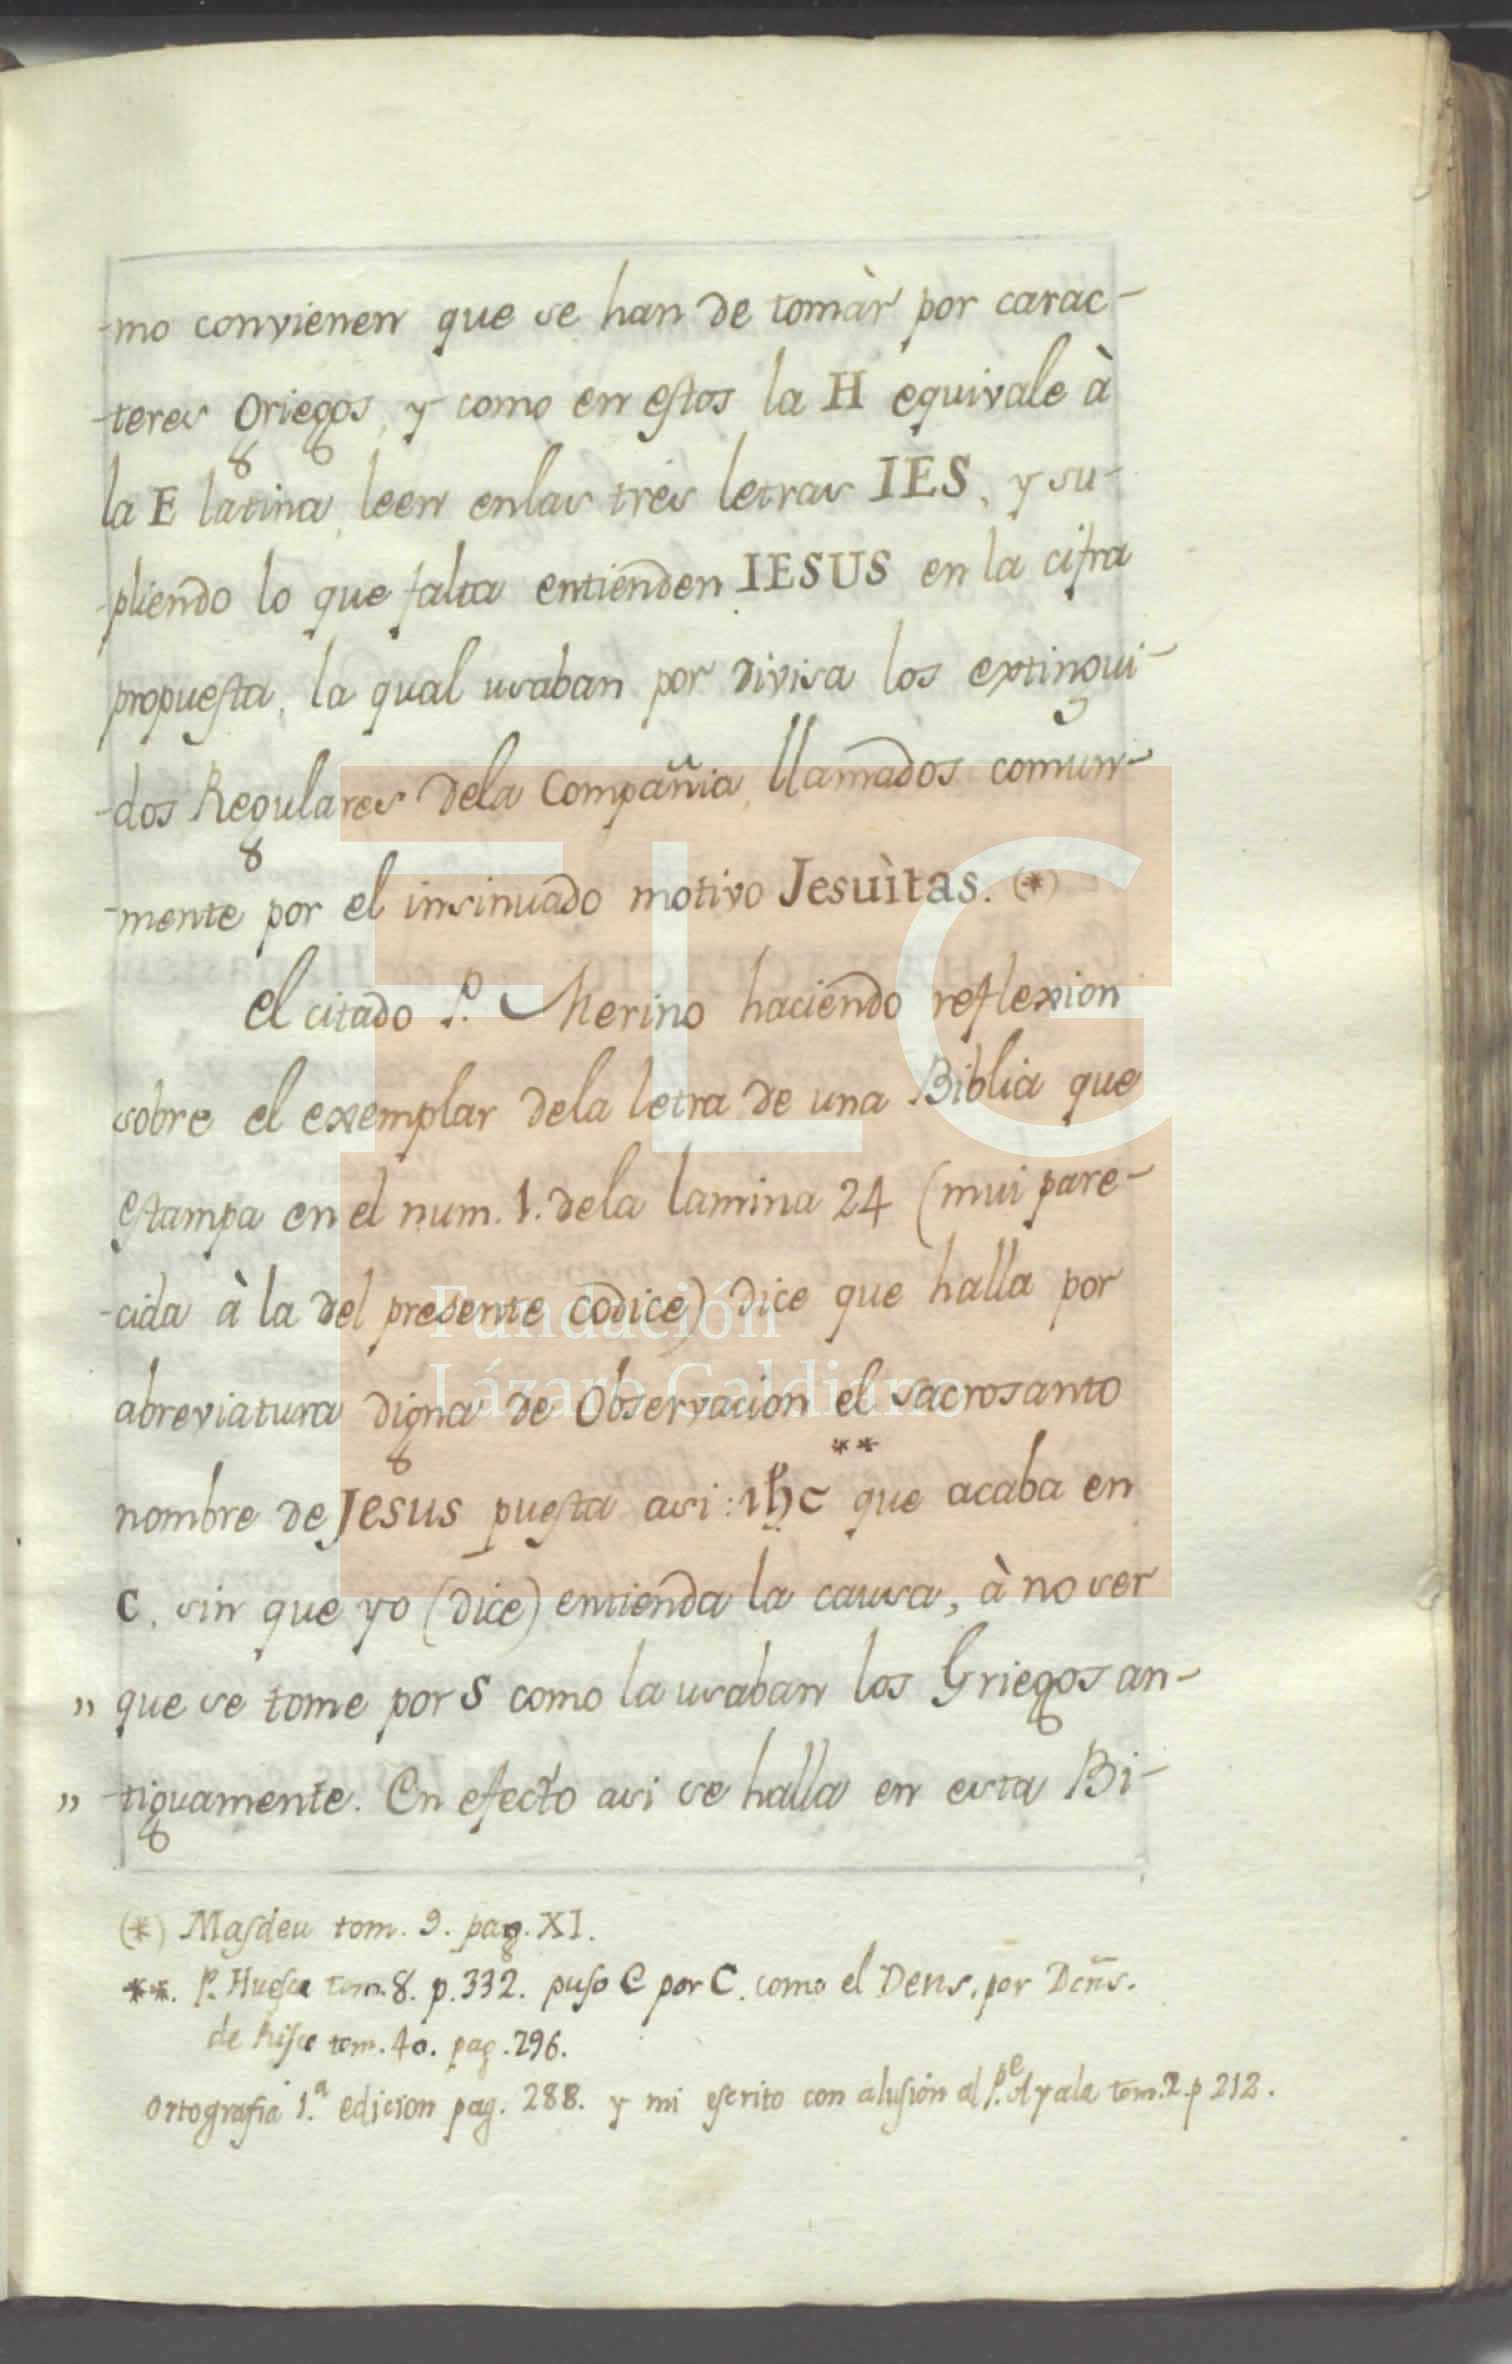 -mo convienen que se han de tomàr por carac-
-teres Griegos, y como en estos la H equivale à
la E latina, leen enlas tres letras IES, y su-
-pliendo lo que falta entienden IESUS en la cifra
propuesta, la qual usaban por divisa los extingui-
-dos Regulares dela Compañia, llamados comun-
-mente por el insinuado motivo Jesuìtas. (*)
El citado P. Merino haciendo reflexion
sobre el exemplar dela letra de una Biblia que
estampa en el num. 1. dela lamina 24 (mui pare-
-cida à la del presente codice) dice que halla por
abreviatura digna de Observacion el sacrosanto
**
nombre de Jesus puesta asi: ihc que acaba en
C. sin que yo (dice) entienda la causa, à no ser
" que se tome por S como la usaban los Griegos an-
" -tiguamente. En efecto asi se halla en esta Bi-
(*) Masdeu tom. 9. pag. XI.
**. P. Huesca tom. 8. p. 332. puso C por C. como el Dens, por Dcñs.
de Risco tom. 40. pag. 296.
Ortografia 1.ª edicion pag. 288. y mi escrito con alusión al P.e Ayala tom. 2. p 212.
FLG
Fundación
Lázaro Galdiano